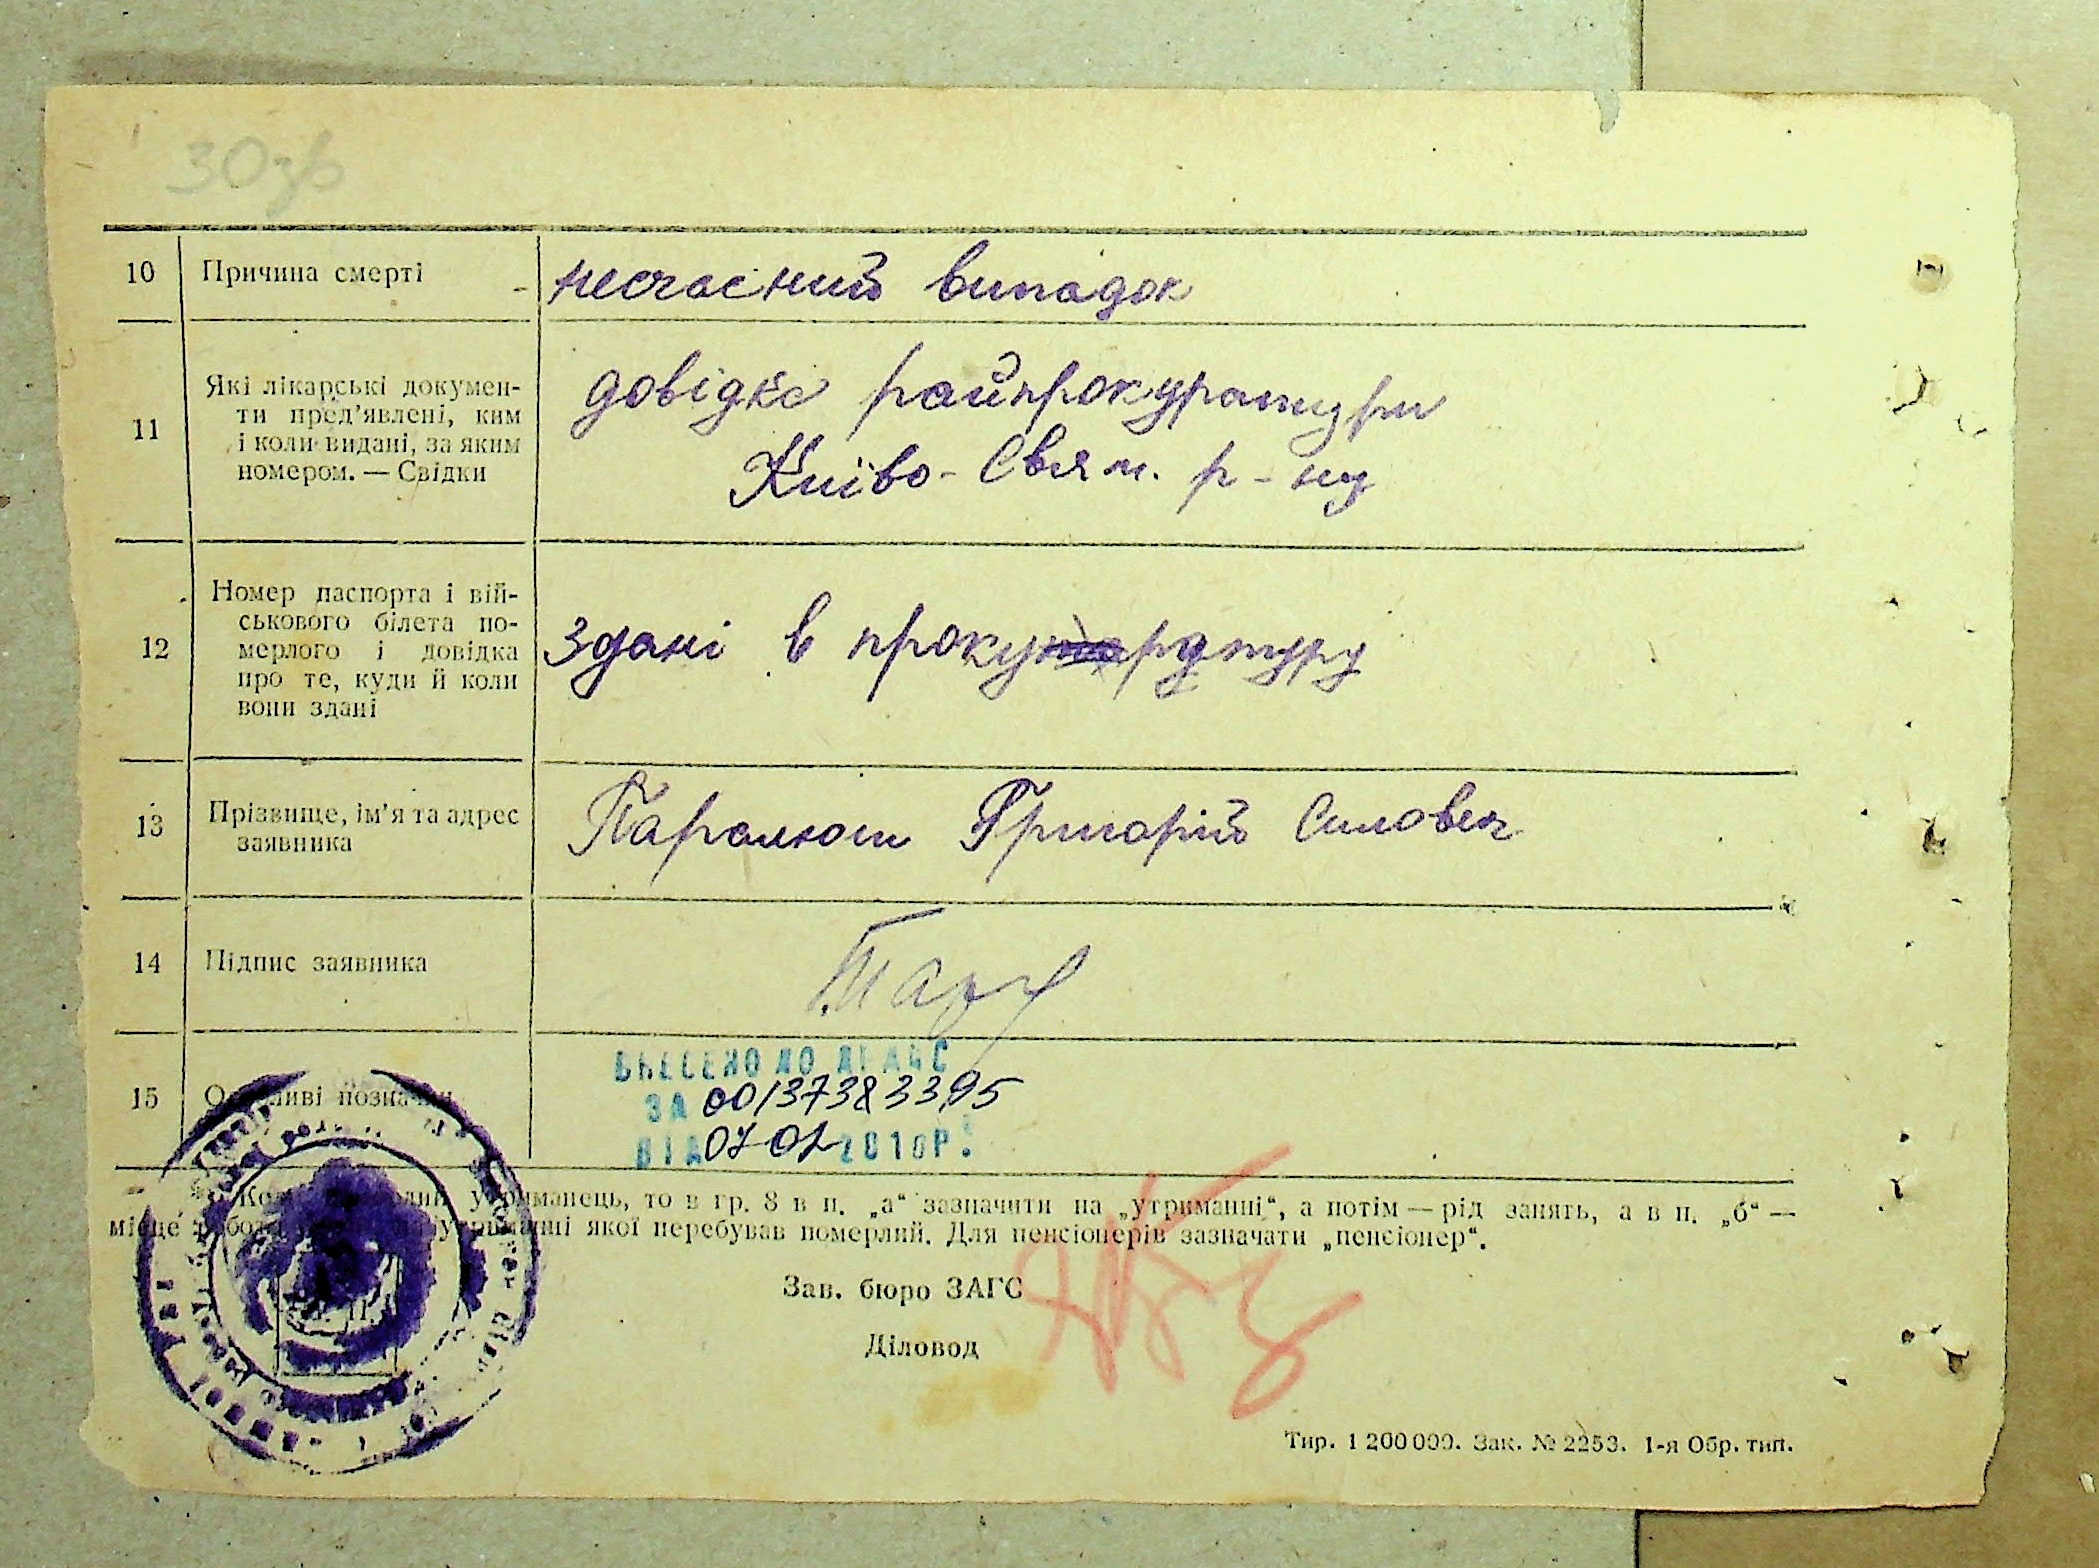 30зв
10 Причина смерті несчасний випадок
11 Які лікарські докумен-
ти пред'явлені, ким
і коли видані, за яким
номером. — Свідки
довідка райпрокуратури
Київо-Свят. р-ну
12 Номер паспорта і вій-
ськового білета по-
мерлого і довідка
про те, куди й коли
вони здані
Здані в прокуратуру
13 Прізвище, ім'я та адрес
заявника
Григорій
14 Підпис заявника
15 Особливі позначки
ВНЕСЕНО ДО ДРАЦС
ЗА 00137383395
ВІД 07 02 2018Р.
утриманець, то в гр. 8 в п. „а“ зазначити на „утриманні“, а потім — рід занять, а в п. „б“ —
місце утриманні якої перебував померлий. Для пенсіонерів зазначати „пенсіонер“.
Зав. бюро ЗАГС
Діловод
Тир. 1 200 000. Зак. № 2253. 1-я Обр. тип.